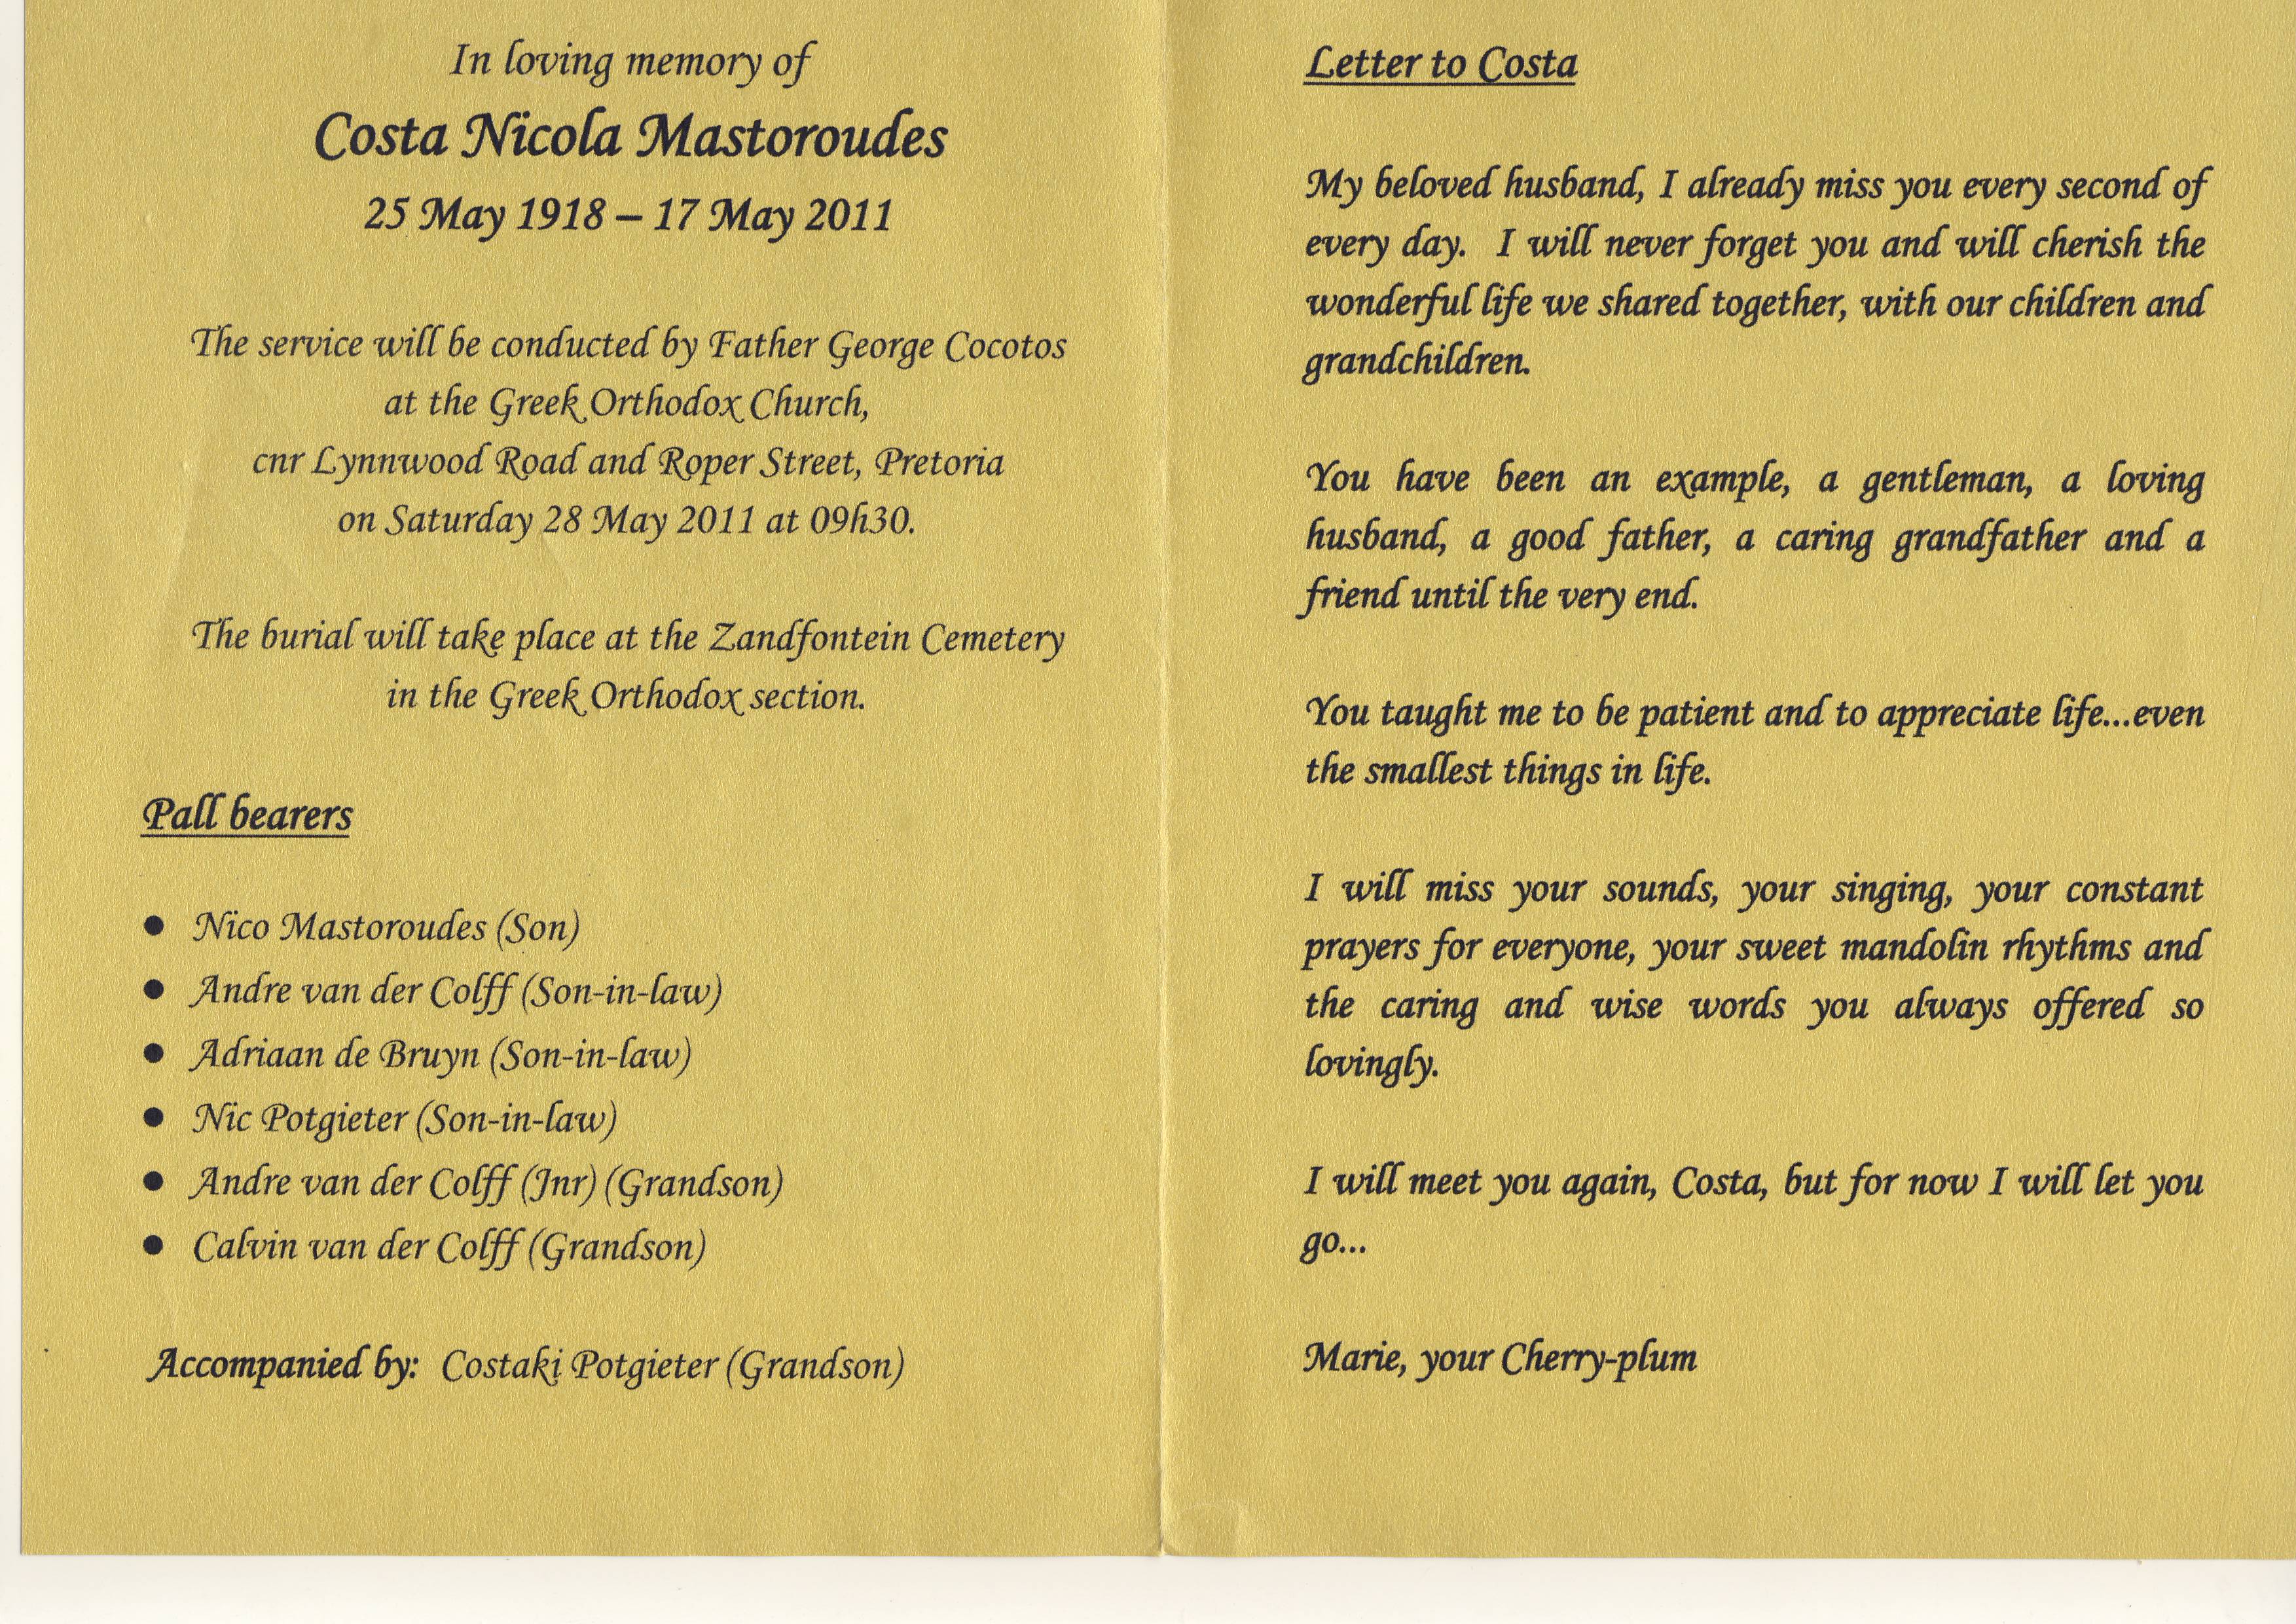 In loving memory of
Costa Nicola Mastoroudes
25 May 1918 – 17 May 2011
The service will be conducted by Father George Cocotos
at the Greek Orthodox Church,
cnr Lynnwood Road and Roper Street, Pretoria
on Saturday 28 May 2011 at 09h30.
The burial will take place at the Zandfontein Cemetery
in the Greek Orthodox section.
Pall bearers
● Nico Mastoroudes (Son)
● Andre van der Colff (Son-in-law)
● Adriaan de Bruyn (Son-in-law)
● Nic Potgieter (Son-in-law)
● Andre van der Colff (Jnr) (Grandson)
● Calvin van der Colff (Grandson)
Accompanied by: Costaki Potgieter (Grandson)
Letter to Costa
My beloved husband, I already miss you every second of
every day. I will never forget you and will cherish the
wonderful life we shared together, with our children and
grandchildren.
You have been an example, a gentleman, a loving
husband, a good father, a caring grandfather and a
friend until the very end.
You taught me to be patient and to appreciate life...even
the smallest things in life.
I will miss your sounds, your singing, your constant
prayers for everyone, your sweet mandolin rhythms and
the caring and wise words you always offered so
lovingly.
I will meet you again, Costa, but for now I will let you
go...
Marie, your Cherry-plum